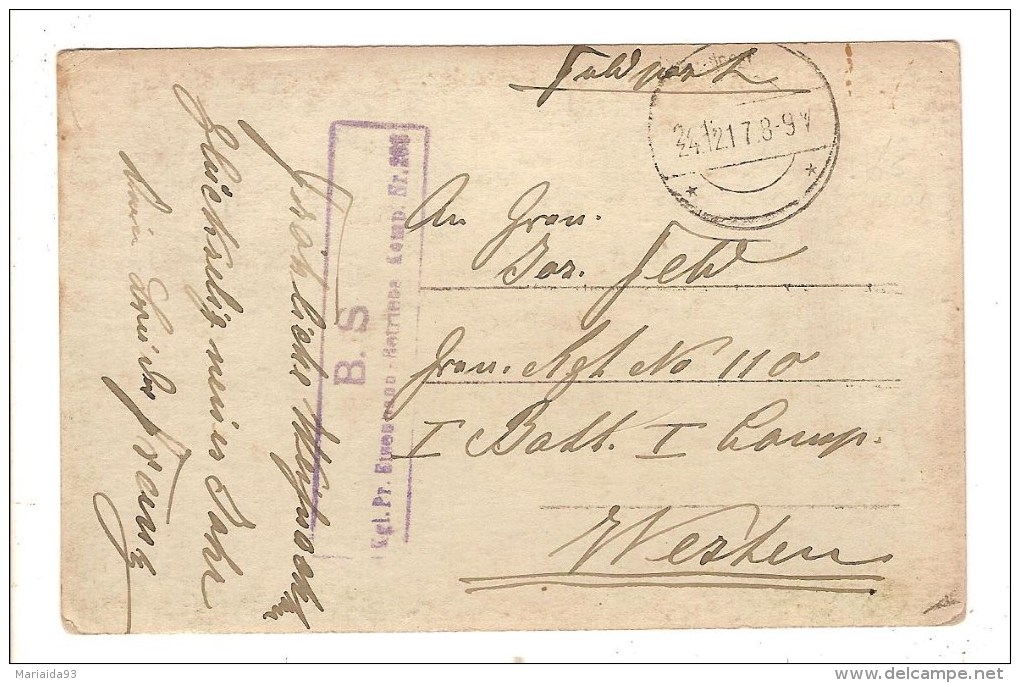 Feldpost
24.12.17.8-9V
An Gren.
Jos. Fehr
Gren. Rgt No 110
I Batt. I Comp.
Westen
B. S
Kgl. Pr. Eisenbahn-Betriebs Komp. Nr.
Fröhliche Weihnachten
Glückselig neues Jahr
dein Bruder Franz
Mariaida93
www.delcampe.net